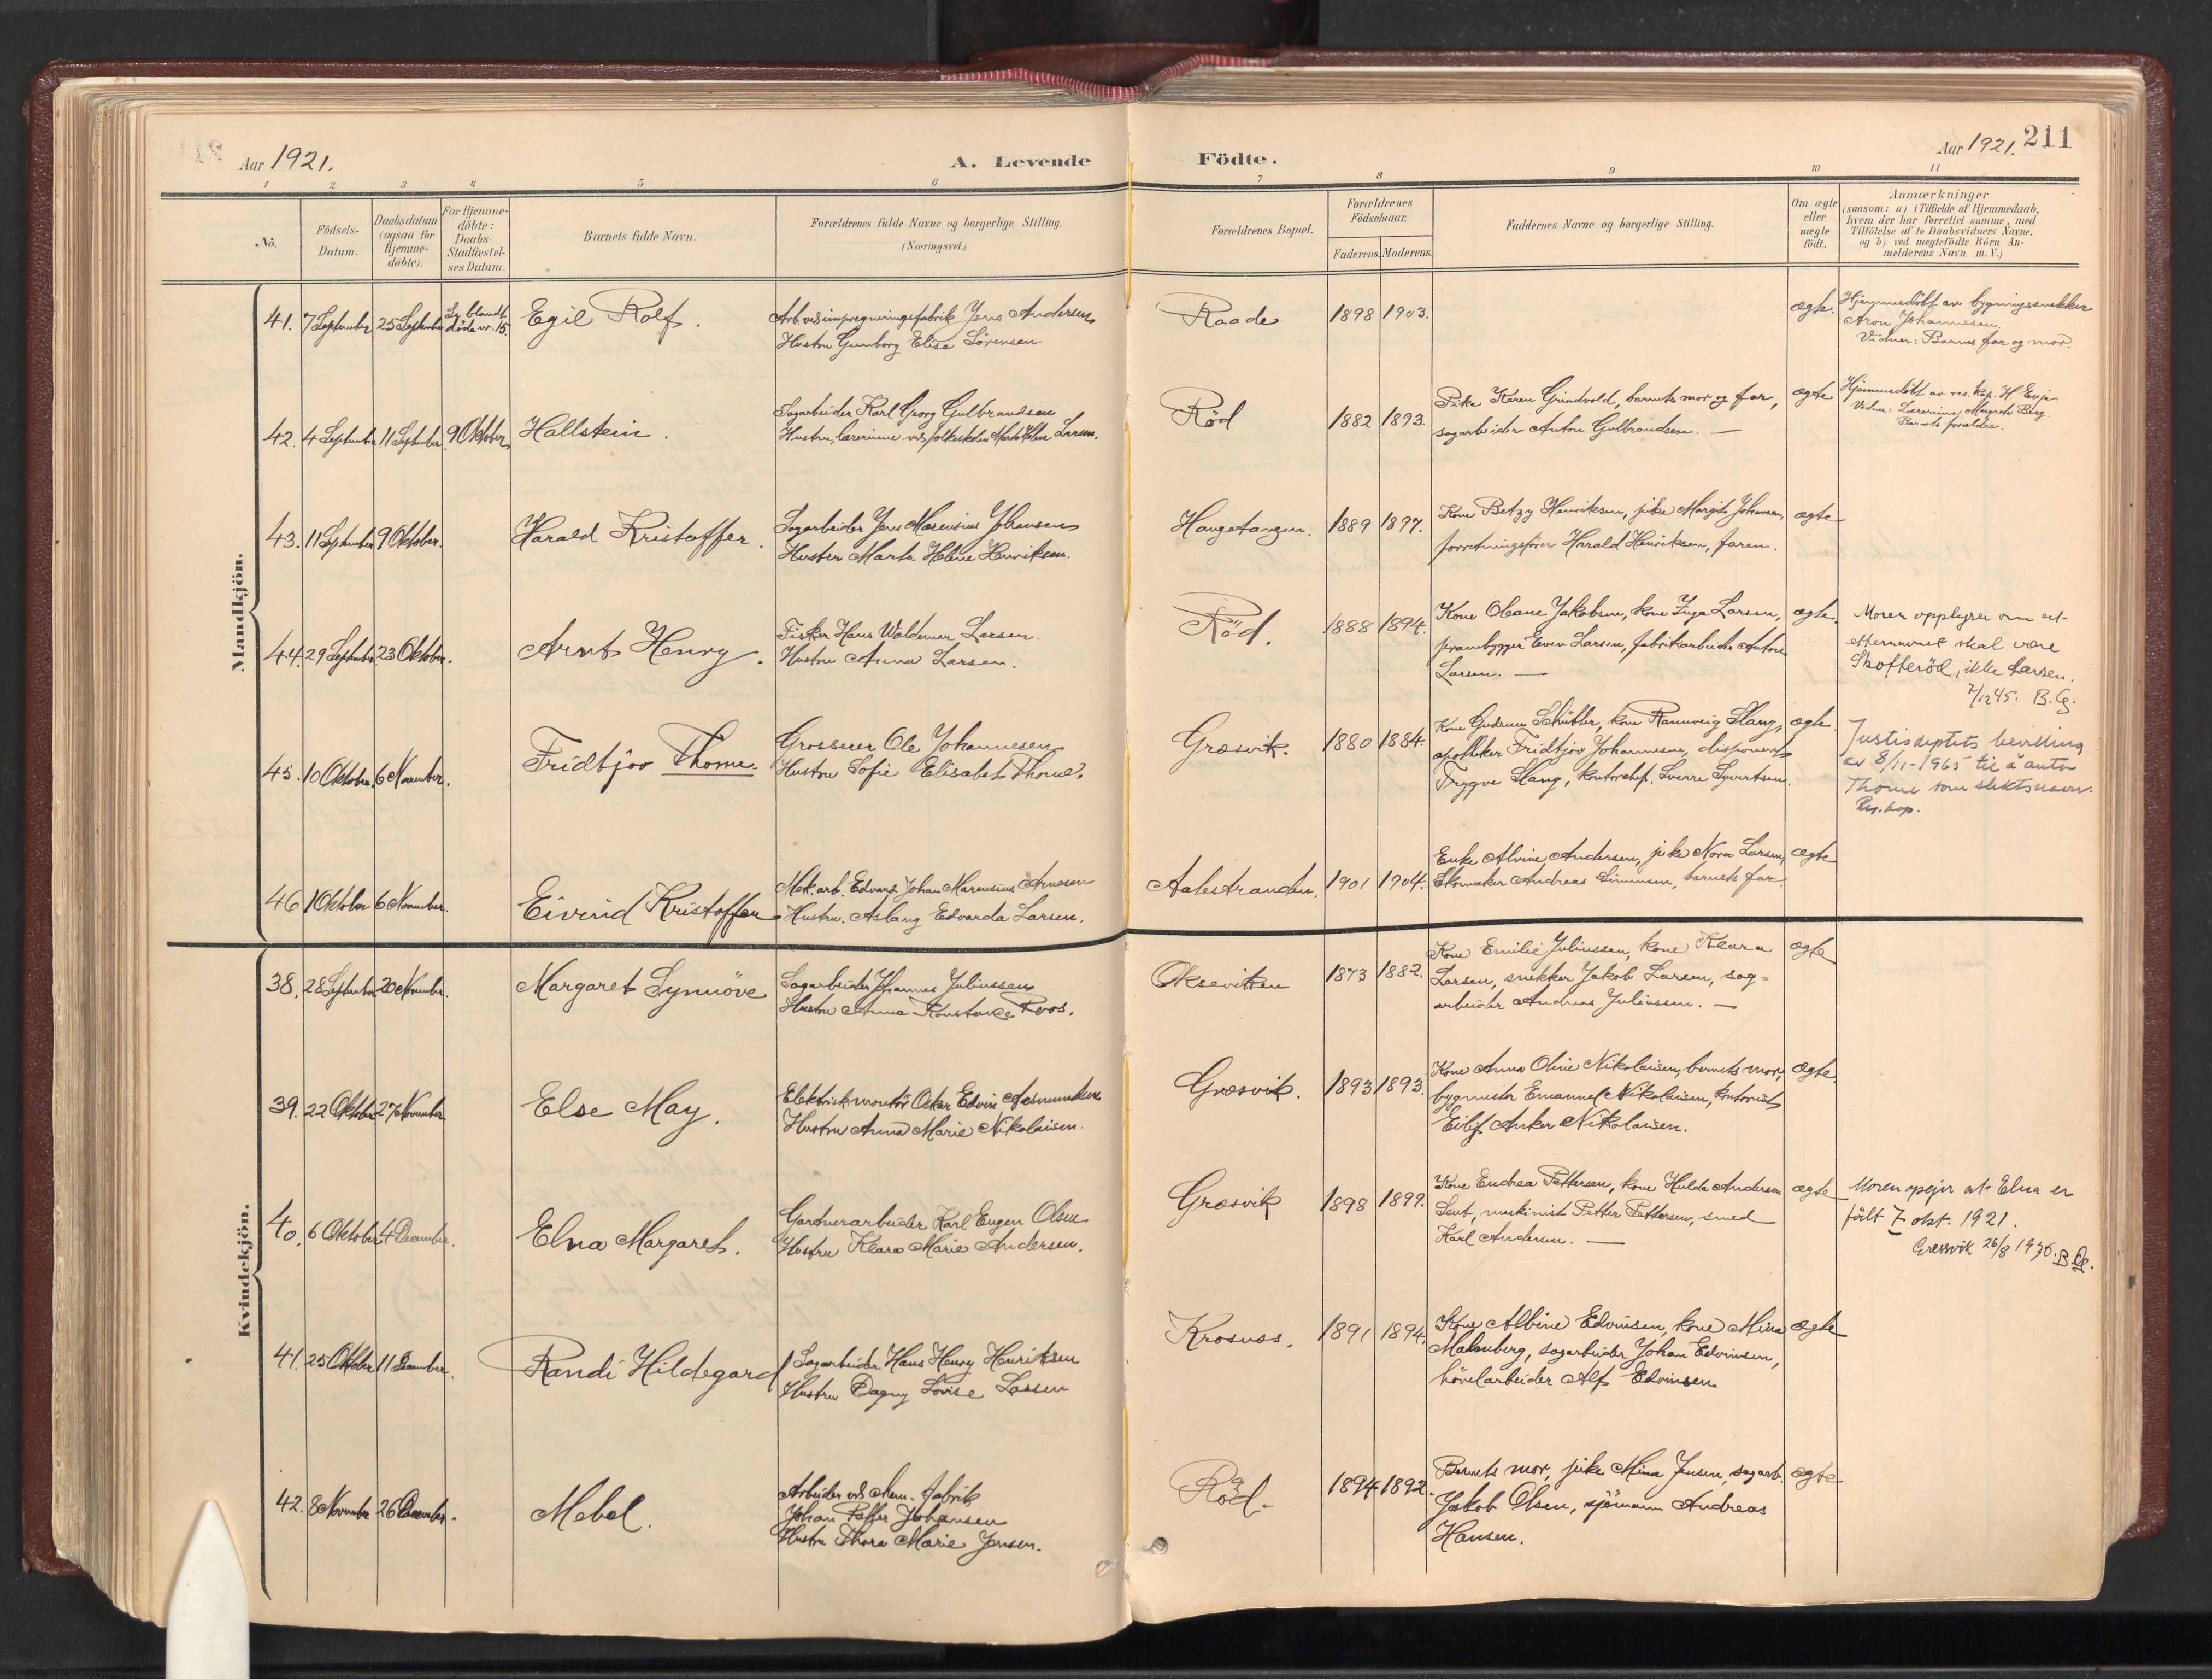 Aar 1921.
A. Levende
Födte.
Aar 1921. 211
1 2 3 4 5 6 7 8 9 10 11
No.
Födsels-
Datum.
Daabsdatum
(ogsaa for
Hjemme-
döbte).
For Hjemme-
döbte:
Daabs-
Stadfæstel-
ses Datum.
Barnets fulde Navn.
Forældrenes fulde Navne og borgerlige Stilling.
(Næringsvei.)
Forældrenes Bopæl.
Forældrenes
Födselsaar.
Faderens. Moderens.
Faddernes Navne og borgerlige Stilling.
Om ægte
eller
uægte
født.
Anmærkninger
(saasom: a) i Tilfælde af Hjemmedaab,
hvem der har forrettet samme, med
Tilföielse af to Daabsvidners Navne,
og b) ved uægtefödte Börn An-
melderens Navn m. V.)
Mandkjön.
41. 7 September 25 September Se blandt
døde nr. 15.
Egil Rolf.
Arb. ved impregneringsfabrik Jens Andersen
Hustru Gunborg Elise Sörensen
Raade
1898 1903.
ægte.
Hjemmedöbt av bygningssnekker
Aron Johannesen.
Vidner: Barnets far og mor.
42. 4 September 11 September 9 Oktober
Hallstein.
Sagarbeider Karl Georg Gulbrandsen
Hustru, lærerinne ved folkeskolen Marta Larsen.
Röd
1882 1893.
Pike Karen Grindvold, barnets mor og far,
sagarbeider Anton Gulbrandsen. —
ægte
Hjemmedöbt av res. kap. H. Evje
Vidner: Lærerinne Margrete Berg.
Barnets foreldre.
43. 11 September 9 Oktober.
Harald Kristoffer.
Sagarbeider Jens Marensius Johansen
Hustru Marta Helene Henriksen.
Haugetangen.
1889 1897.
Kone Betzy Henriksen, pike Margit Johansen,
forretningsfører Harald Henriksen, faren.
ægte
44. 29 September 23 Oktober.
Arnt Henry.
Fisker Hans Waldemar Larsen.
Hustru Anna Larsen.
Röd.
1888 1894.
Kone Oleane Jakobsen, kone Inga Larsen,
prambygger Even Larsen, fabrikarbeider Anton
Larsen. —
ægte.
Moren opplyser om at
etternavnet skal være
Skofteröd, ikke Larsen.
7/12 45. B.G.
45. 10 Oktober. 6 November.
Fridtjov Thome.
Grosserer Ole Johannesen
Hustru Sofie Elisabet Thome.
Græsvik.
1880 1884.
Kone Gudrun Schübler, kone Rannveig Slang,
apotheker Fridtjov Johannesen, disponent
Trygve Slang, kontorchef Sverre Syvertsen.
ægte
Justisdeptets bevilling
av 8/11-1965 til å anta
Thome som slektsnavn.
46 1 Oktober 6 November.
Eivind Kristoffer
Mek. arb. Edvard Johan Marensius Arnesen
Hustru. Aslaug Edvarda Larsen.
Aalestranden.
1901 1904.
Enke Alvine Andersen, pike Nora Larsen,
Skomaker Andreas Simonsen, barnets far.
ægte
Kvindekjön.
38. 28 September 20 November.
Margaret Synnöve
Sagarbeider Johannes Juliussen
Hustru Anna Konstance Roos.
Okseviken
1873 1882.
Kone Emilie Juliussen, kone Klara
Larsen, snekker Jakob Larsen, sag-
arbeider Andreas Juliussen. —
ægte
39. 22 Oktober 27 November
Else May.
Elektriskmontör Oskar Edvin Asmundsen
Hustru Anna Marie Nikolaisen.
Græsvik.
1893 1893.
Kone Anna Oline Nikolaisen, barnets mor,
bygmester Emanuel Nikolaisen, kontorist
Eilif Anker Nikolaisen.
ægte.
40. 6 Oktober 4 December.
Elna Margaret.
Gartnerarbeider Karl Eugen Olsen
Hustru Klara Marie Andersen.
Græsvik
1898 1899.
Kone Endrea Pettersen, kone Hulda Andersen
Laut, maskinist Petter Pettersen, smed
Karl Andersen. —
ægte
Moren opgir at Elna er
födt 7 okt. 1921.
Gressvik 26/8 1936. B.G.
41. 25 Oktober 11 December.
Randi Hildegard
Sagarbeider Hans Henry Henriksen
Hustru Dagny Lovise Larsen
Krosnes.
1891 1894.
Kone Albine Edvinsen, kone Mina
Malmberg, sagarbeider Johan Edvinsen,
hövelarbeider Alf Edvinsen
ægte
42. 8 November 26 December.
Mabel.
Arbeider ved chem. fabrik
Johan Petter Johansen
Hustru Thora Marie Jensen.
Röd.
1894 1892.
Barnets mor, pike Mina Jensen, sagarb.
Jakob Olsen, sjömann Andreas
Hansen.
ægte